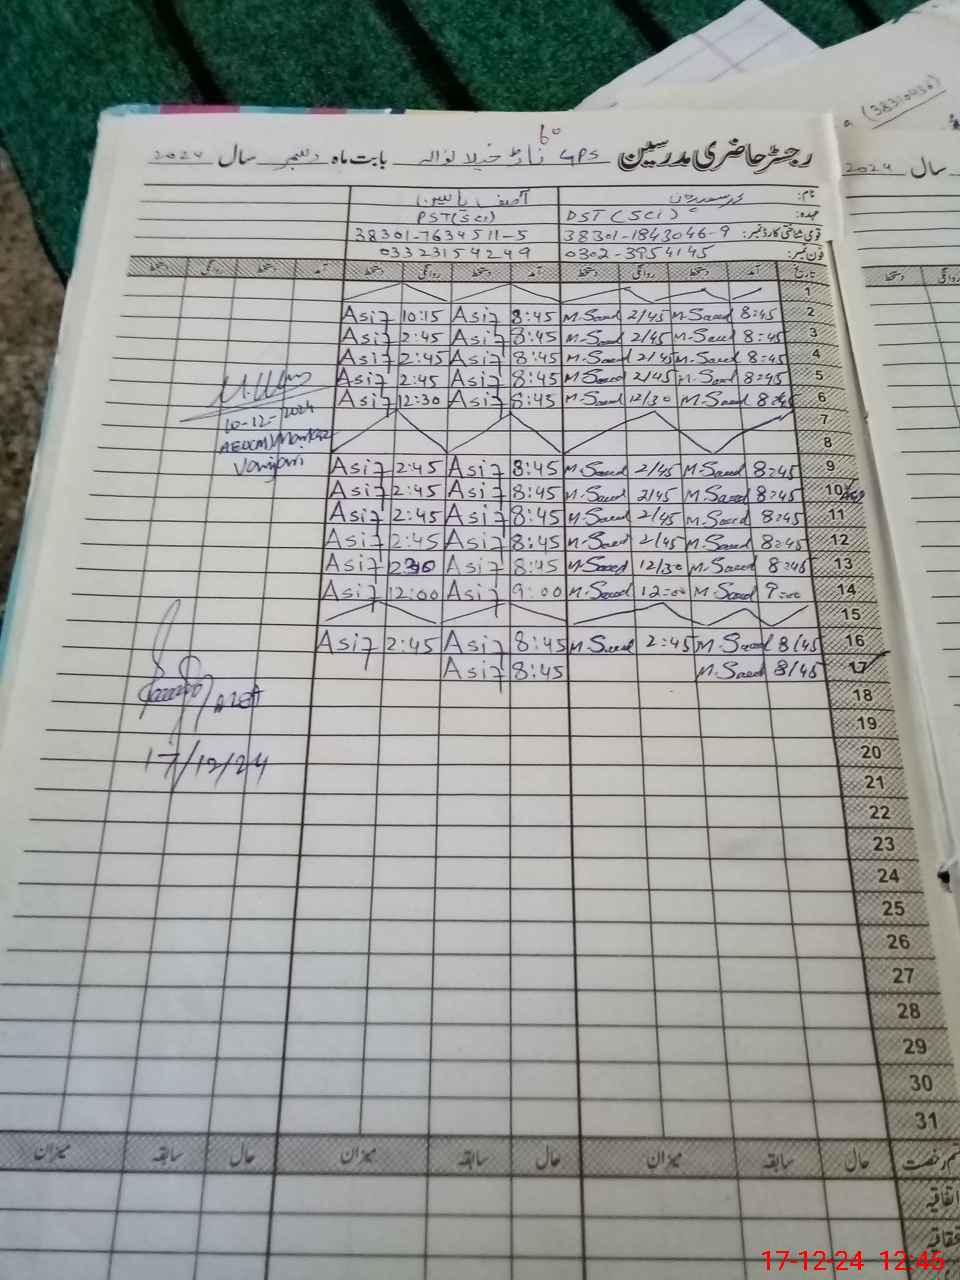 (38310436)
رجسٹر حاضری مدرسین GPS بابت ماہ دسمبر سال 2024
سال 2024
نام: آصف یاسین
عہدہ: DST (SCI) PST(Sci)
قومی شناختی کارڈ نمبر: 38301-1843046-9 38301-7634511-5
فون نمبر: 0302-3954145 03323154249
تاریخ آمد دستخط روانگی دستخط آمد دستخط روانگی دستخط آمد دستخط روانگی دستخط
1
2 8:45 M.Saed 2/45 M.Saed 8:45 Asif 10:15 Asif
3 8:45 M.Saed 2/45 M.Saed 8:45 Asif 2:45 Asif
4 8:45 M.Saed 2/45 M.Saed 8:45 Asif 2:45 Asif
5 8:45 M.Saed 2/45 M.Saed 8:45 Asif 2:45 Asif
6 8:45 M.Saed 12/30 M.Saed 8:45 Asif 12:30 Asif
7
8
10-12-2024
AEO(M) Markaz
9 8:45 M.Saed 2/45 M.Saed 8:45 Asif 2:45 Asif
10 8:45 M.Saed 2/45 M.Saed 8:45 Asif 2:45 Asif
11 8:45 M.Saed 2/45 M.Saed 8:45 Asif 2:45 Asif
12 8:45 M.Saed 2/45 M.Saed 8:45 Asif 2:45 Asif
13 8:45 M.Saed 12/30 M.Saed 8:45 Asif Asif
14 9:00 M.Saed 12:00 M.Saed 9:00 Asif 12:00 Asif
15
16 8/45 M.Saed 2:45 M.Saed 8:45 Asif 2:45 Asif
17 8/45 M.Saed 8:45 Asif
17/12/24
18
19
20
21
22
23
24
25
26
27
28
29
30
31
قسم رخصت حال سابقہ میزان حال سابقہ میزان حال سابقہ میزان
اتفاقیہ
17-12-24 12:45